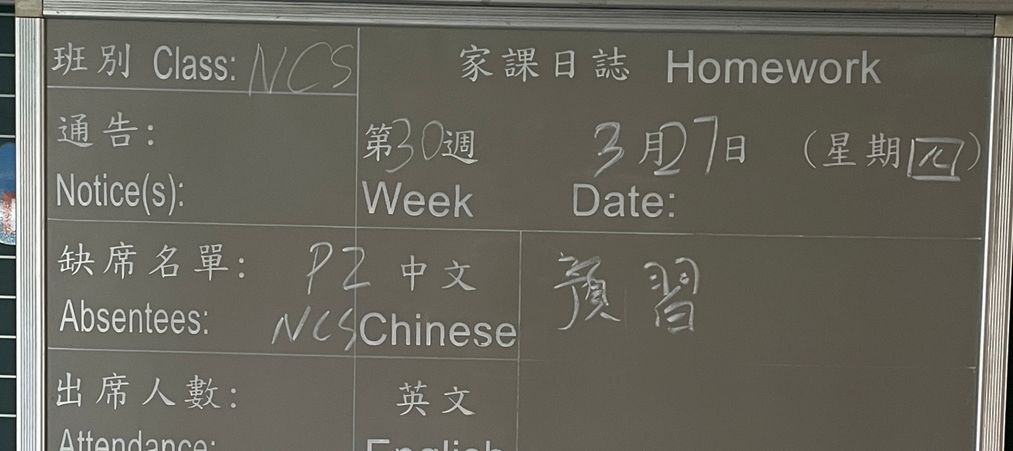 班別 Class: NCS
家課日誌 Homework
通告:
Notice(s):
第30週 3月27日 (星期四)
Week Date:
缺席名單:
Absentees:
P2 中文 預習
NCS Chinese
出席人數:
Attendance:
英文
English